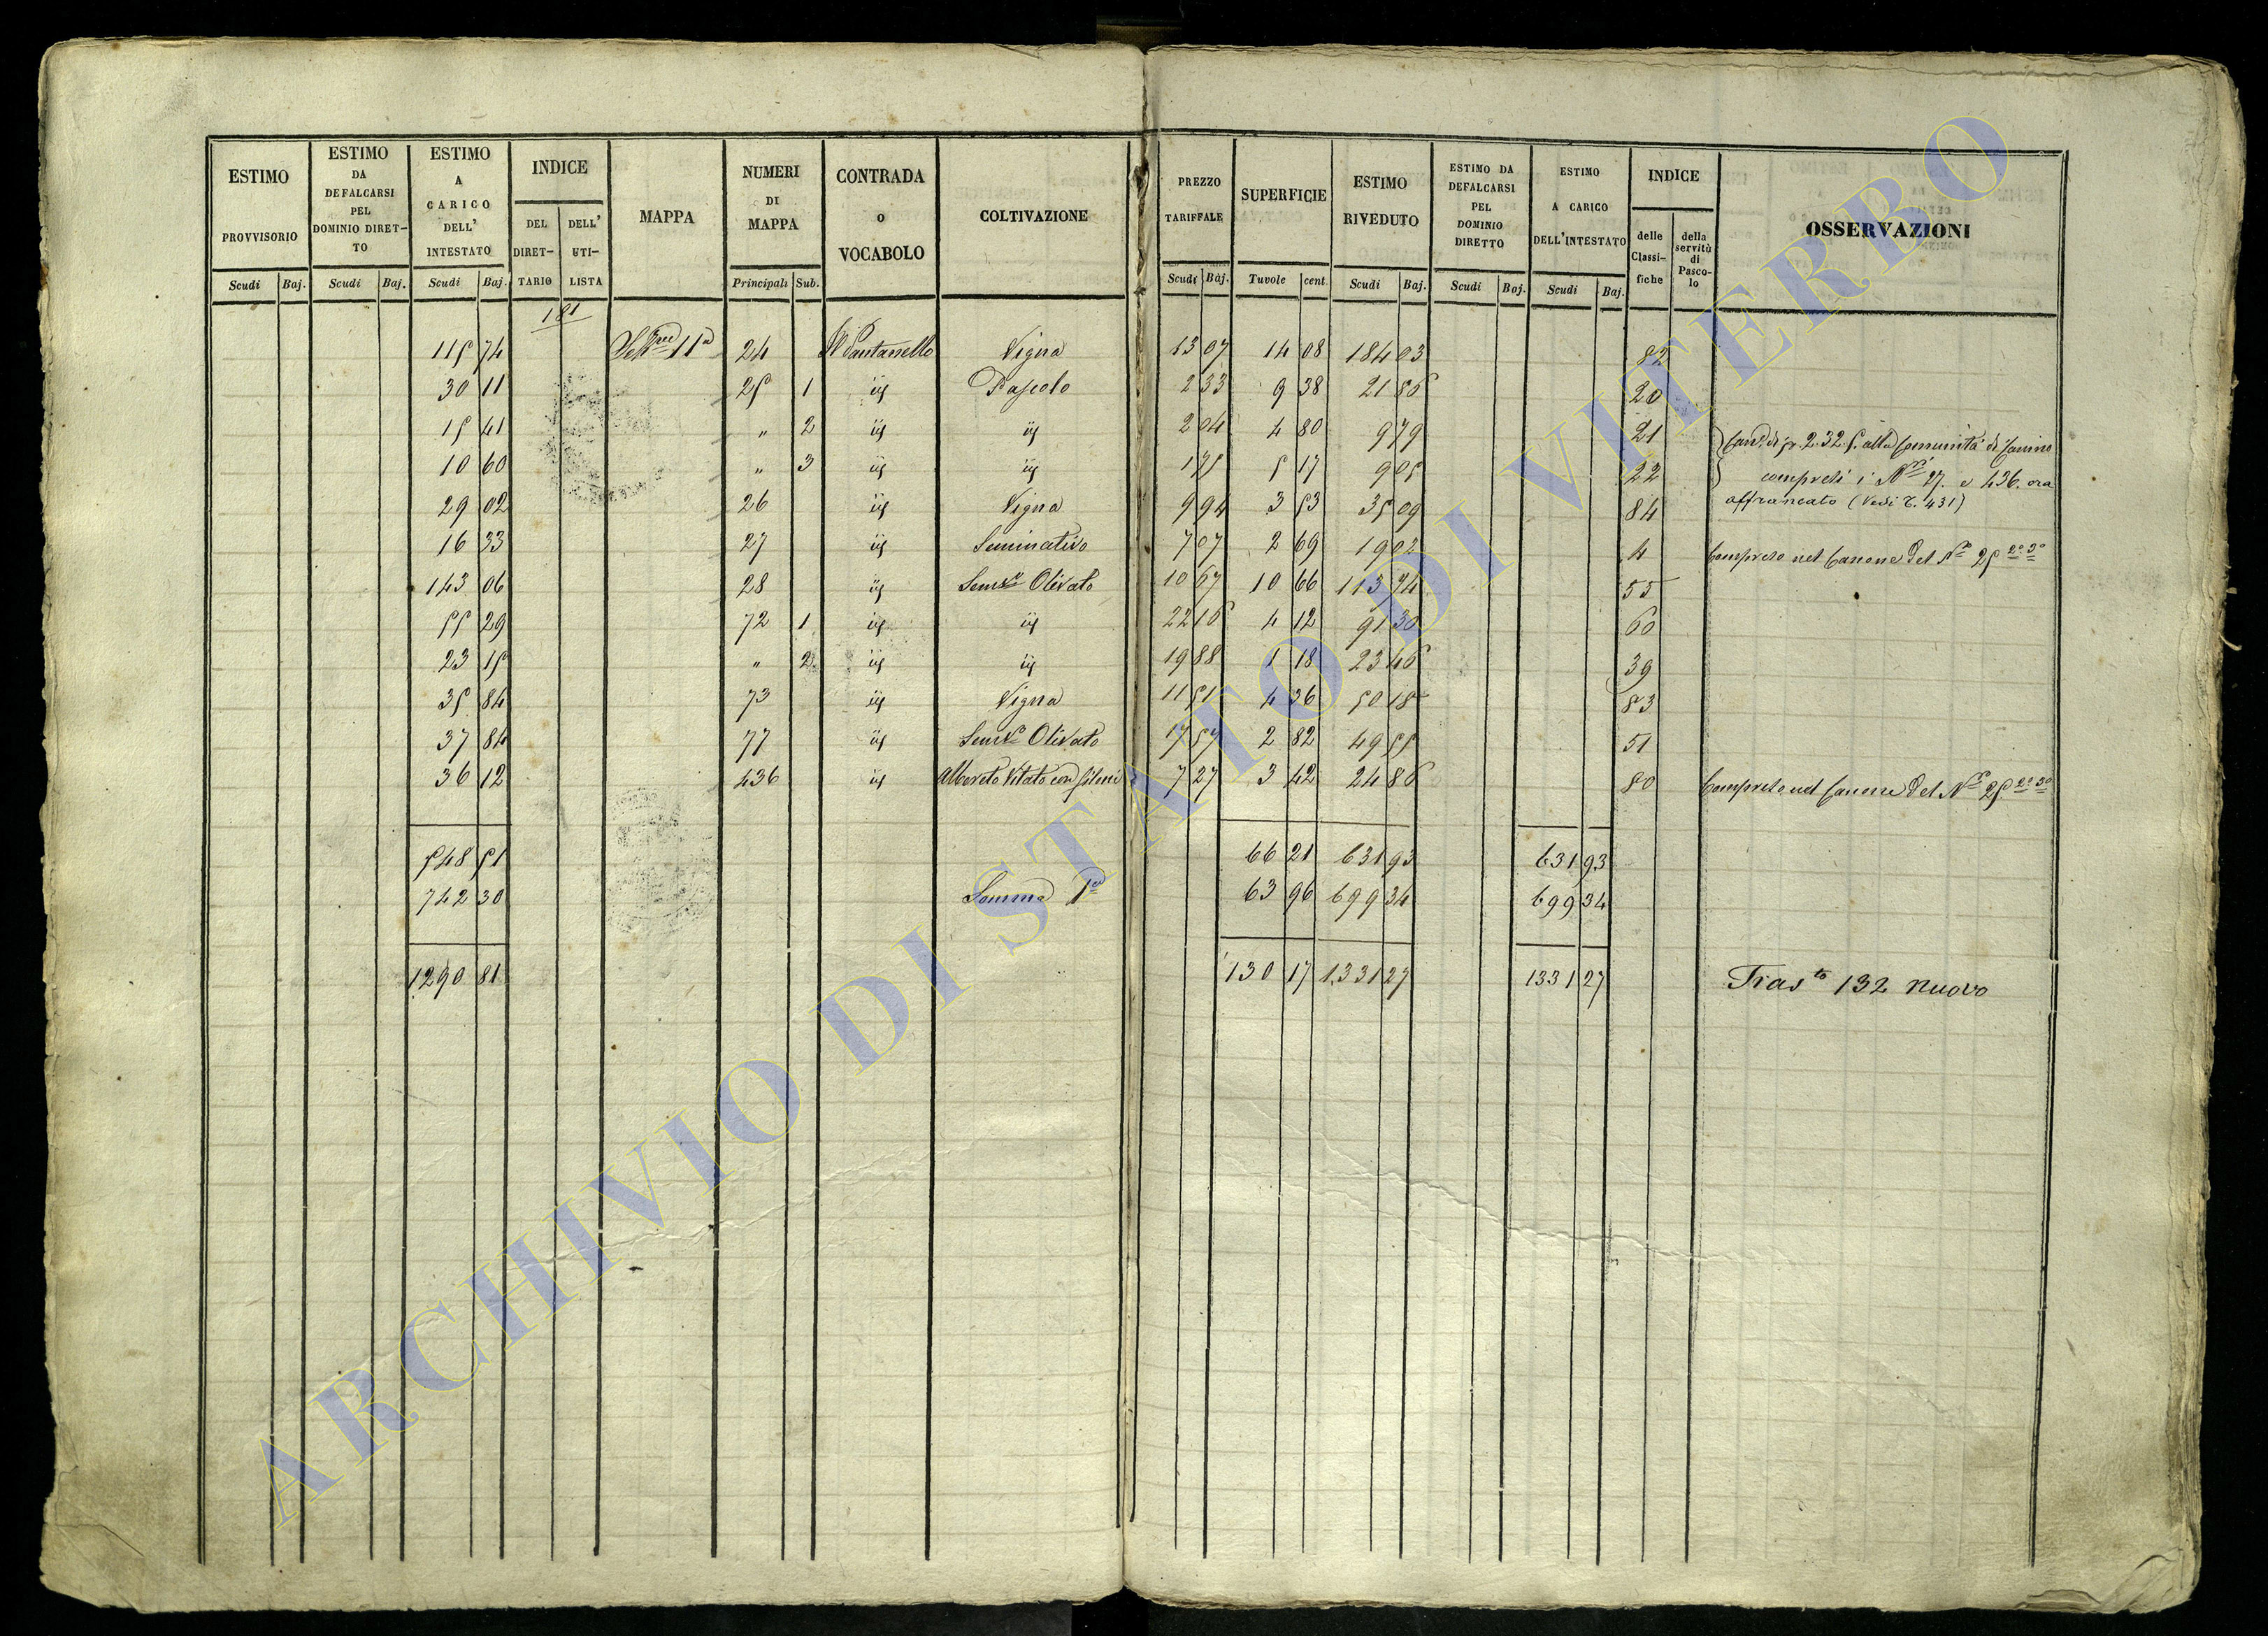 ESTIMO PROVVISORIO
ESTIMO DA DEFALCARSI PEL DOMINIO DIRETTO
ESTIMO A CARICO DELL' INTESTATO
INDICE
DEL DIRETTARIO
DELL' UTILISTA
MAPPA
NUMERI DI MAPPA
CONTRADA o VOCABOLO
COLTIVAZIONE
PREZZO TARIFFALE
SUPERFICIE
ESTIMO RIVEDUTO
ESTIMO DA DEFALCARSI PEL DOMINIO DIRETTO
ESTIMO A CARICO DELL'INTESTATO
INDICE
delle Classifiche
della servitù di Pascolo
OSSERVAZIONI
Scudi Baj. Scudi Baj. Scudi Baj. Principali Sub. Scudi Baj. Tavole cent. Scudi Baj. Scudi Baj. Scudi Baj.
181
115 74 24 Pantanello Vigna 13 07 14 08 184 03 82
30 11 25 1 iij Pascolo 2 33 9 38 21 86 20
15 41 " 2 iij iij 2 04 4 80 9 79 21
10 60 " 3 iij iij 1 75 5 17 9 05 22
29 02 26 iij Vigna 9 94 3 53 35 09 84
16 33 27 iij Seminativo 7 07 2 69 19 02 4
143 06 28 iij Semvo Olivato 10 67 10 66 113 74 55
55 29 72 1 iij iij 22 16 4 12 91 30 60
23 15 " 2 iij iij 19 88 1 18 23 46 39
35 84 73 iij Vigna 11 51 4 36 50 18 83
37 84 77 iij Semvo Olivato 17 57 2 82 49 55 51
36 12 436 iij Alborato Vitato con 7 27 3 42 24 86 80
2.32.5. alla Comunità di Canino
compresi i Nri 27. e 436. ora
affrancato (Vedi T. 431)
Compreso nel Canone del No 25 2o 3o
Compreso nel Canone del No 25 2o 3o
548 51 66 21 631 93 631 93
742 30 Somma Pa 63 96 699 34 699 34
1290 81 130 17 1331 27 1331 27 Trasto 132 nuovo
ARCHIVIO DI STATO DI VITERBO